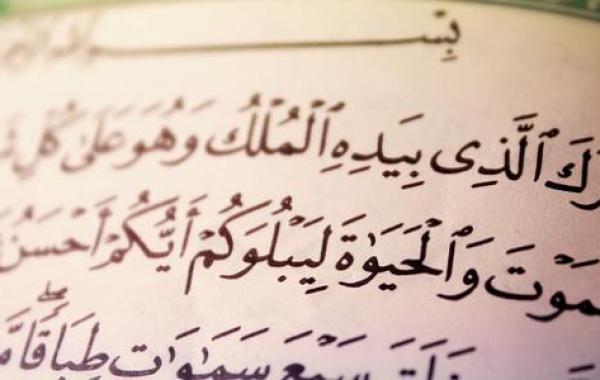 بِسْمِ
رَكَ ٱلَّذِى بِيَدِهِ ٱلْمُلْكُ وَهُوَ عَلَىٰ كُلِّ
مَوْتَ وَٱلْحَيَوٰةَ لِيَبْلُوَكُمْ أَيُّكُمْ أَحْسَنُ
خَلَقَ سَبْعَ سَمَٰوَٰتٍ طِبَاقًاۖ مَّا